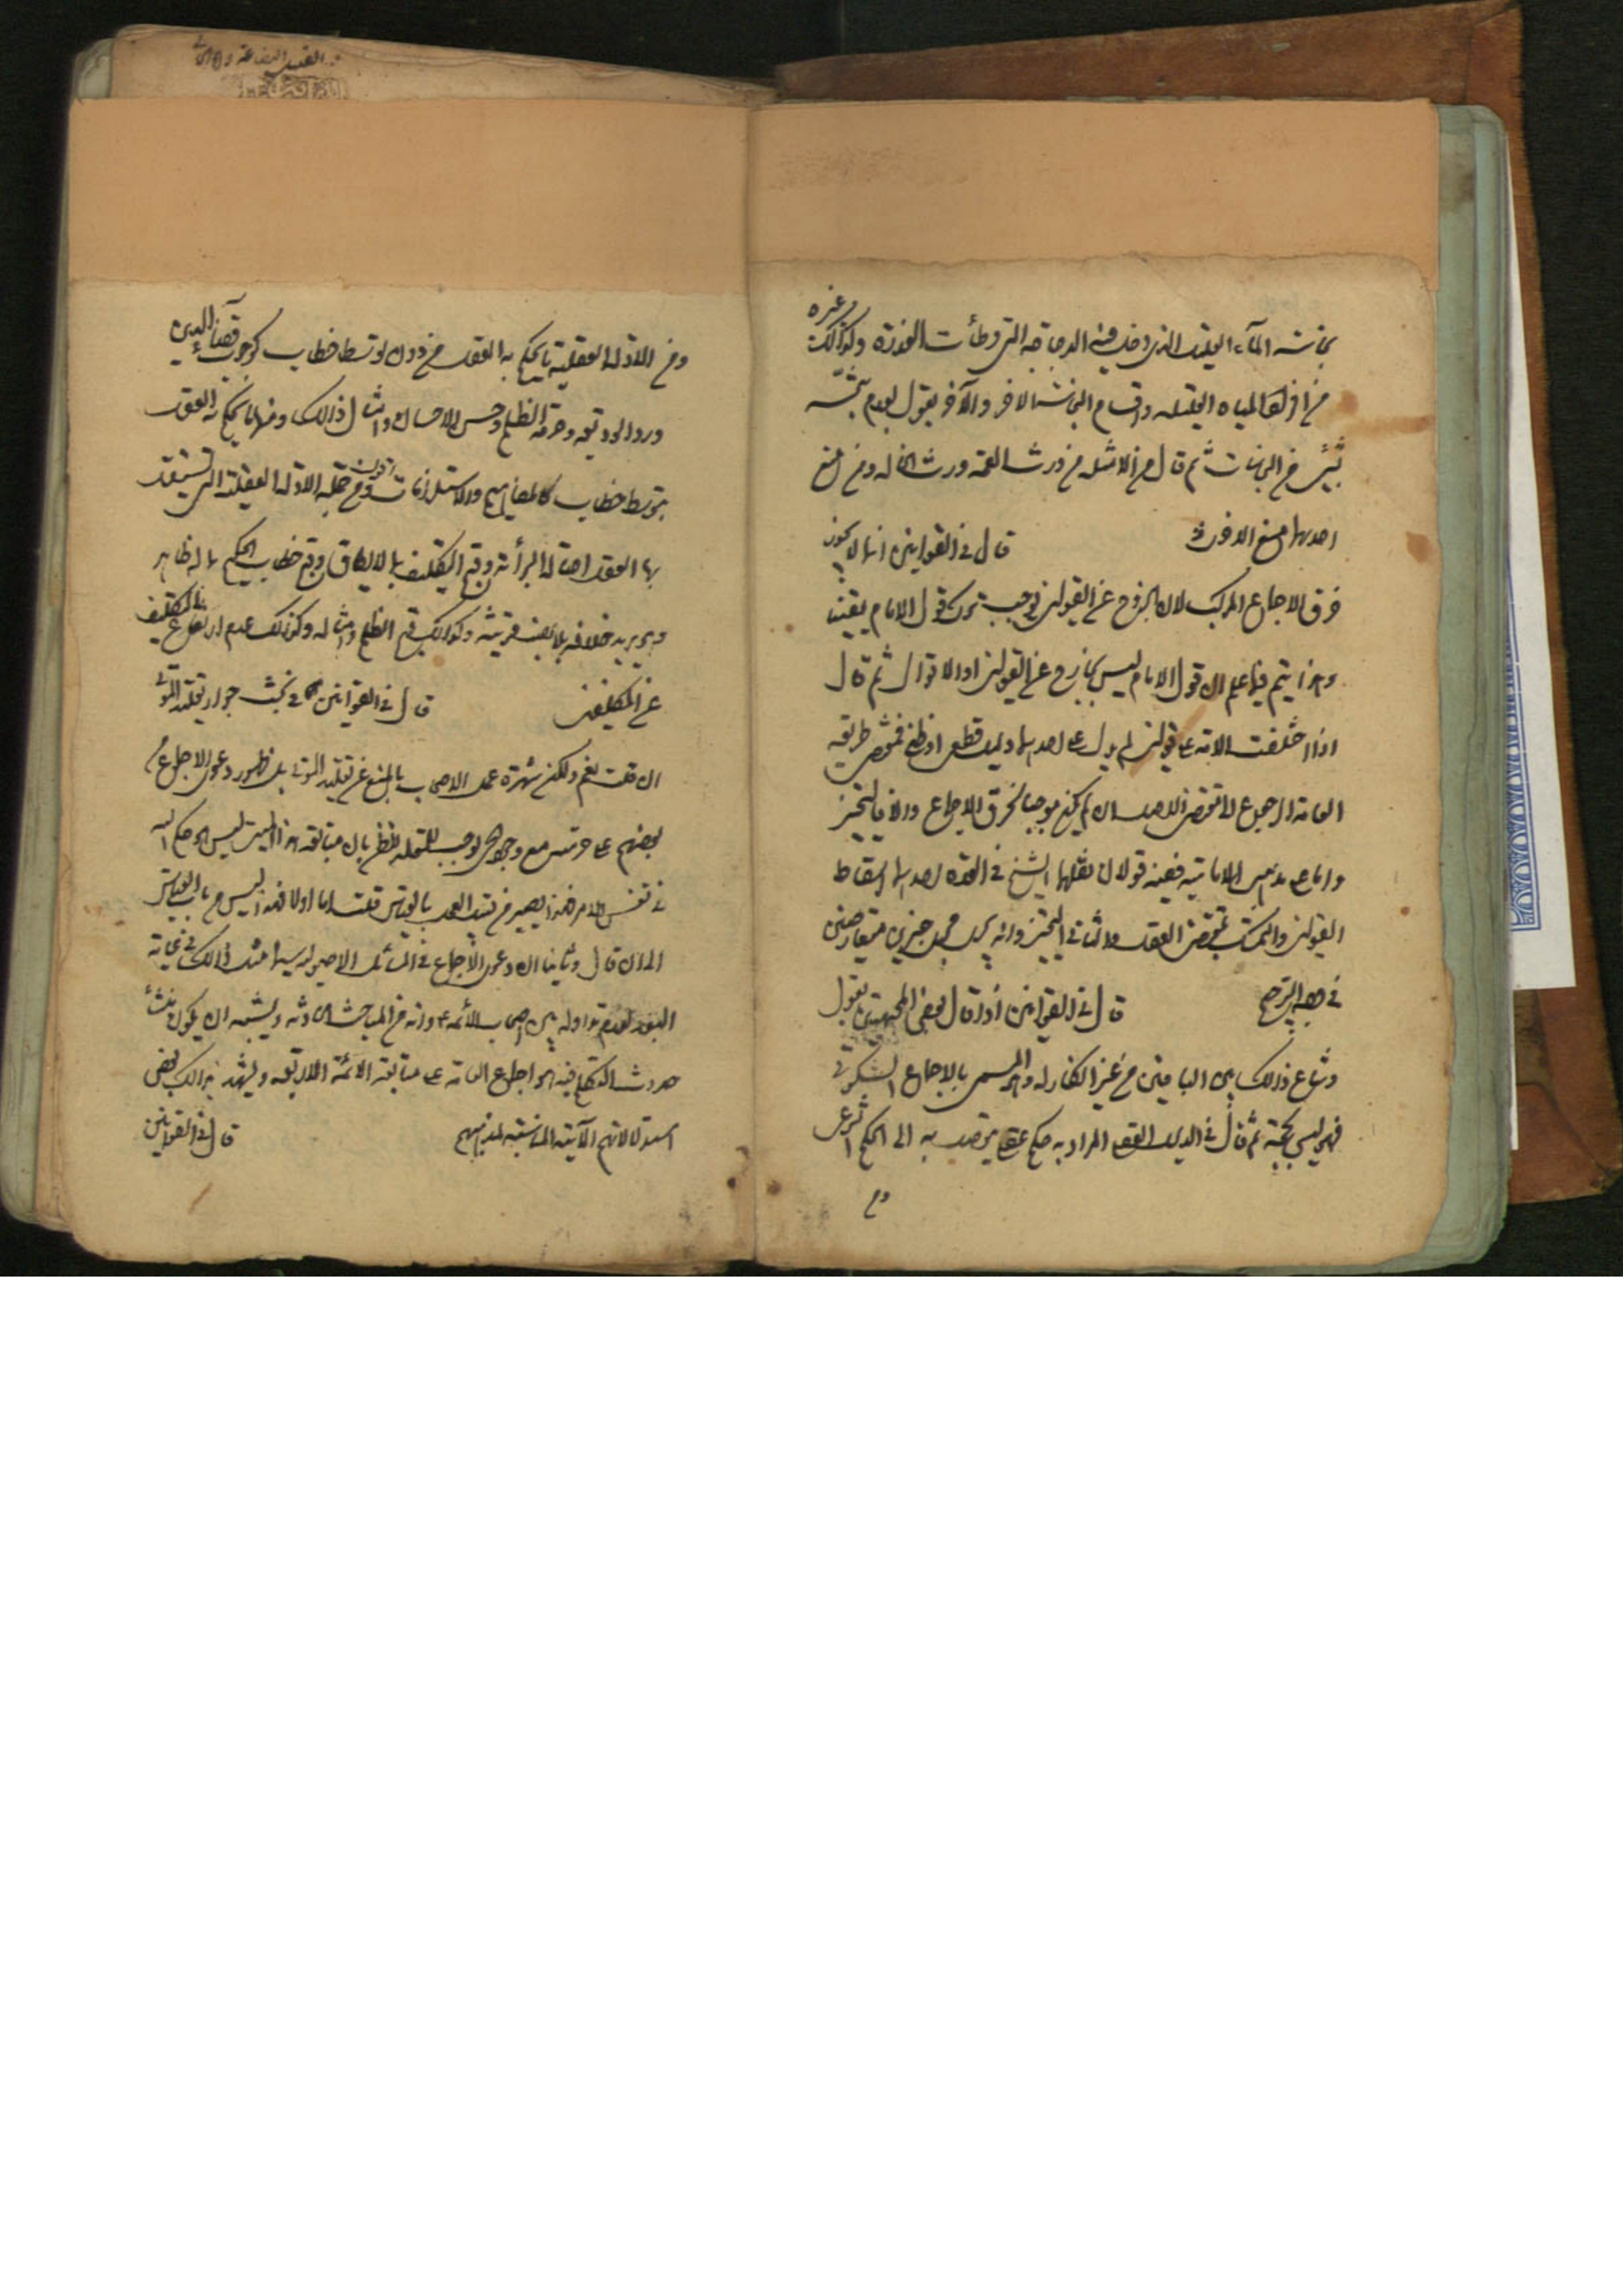 نجاسة الماء القليل الذي دخل فيه الدجاجة التي وطأت العذرة وكذلك غيره
من افراد المياه القليلة واقسام النجاسة الاخر والآخر يقول بعدم تنجسه
بشئ من النجاسات ثم قال من الامثلة من ورث العمة ورث الخالة ومن منع
احديهما منع الاخرى قال في القوانين انه لا يجوز
خرق الاجماع المركب لان الخروج عن القولين يوجب ترك قول الامام يقينا
وهذا يتم فيما علم ان قول الامام ليس بخارج عن القولين او الاقوال ثم قال
اذا اختلفت الامة على قولين لم يدل على احدهما دليل قطعي او ظني فمقتضى طريقة
العامة الرجوع الى مقتضى الاصل ان لم يكن موجبا لخرق الاجماع والا فالتخيير
واما على مذهب الامامية ففيه قولان نقلهما الشيخ في العدة احدهما اسقاط
القولين والتمسك بمقتضى العقل والثاني التخيير وانه يجري مجرى خبرين متعارضين
الترجيح قال في القوانين اذا قال بعض المجتهدين بقول
وشاع ذلك بين الباقين من غير انكار له وهو المسمى بالاجماع السكوتي
فهو ليس بحجة ثم قال في الدليل العقلي المراد به حكم عقلي يتوصل به الى الحكم الشرعي
ومن
ومن الادلة العقلية ما يحكم به العقل من دون توسط خطاب كوجوب قضاء الدين
ورد الوديعة وحرمة الظلم وحسن الاحسان وامثال ذلك ومنها ما يحكم به العقل
بتوسط خطاب كالمفاهيم والاستلزامات اقول ومن جملة الادلة العقلية التي يستقل
بها العقل اصالة البرائة وقبح التكليف بما لا يطاق وقبح خطاب الحكيم بما له ظاهر
وهو يريد خلافه بلا نصب قرينة وكذلك قبح الظلم وامثاله وكذلك عدم ارتفاع التكليف
عن المكلفين قال في القوانين في بحث جواز تقليد الموتى
ان قلت نعم ولكن شهرة عمل الاصحاب بالمنع عن تقليد الموتى بل ظهور دعوى الاجماع من
بعضهم على حرمته مع وجود الحي يوجب للمقلد الظن بان متابعة هذا الميت ليس هو حكم الله
في نفس الامر فهذا يصير من قبيل العمل بالقياس قلت اما اولا فهذا ليس من باب القياس
الى ان قال وثانيا ان دعوى الاجماع في المسائل الاصولية سيما مثل ذلك في غاية
البعد لعدم تداوله بين اصحاب الائمة ع وانه من المباحث الحادثة ويشبه ان يكون منشأ
حدوث التكلم فيه هو اجماع العامة على متابعة الائمة الاربعة ويشهد بذلك بعض
استدلالاتهم الآتية المناسبة لمذهبهم قال في القوانين